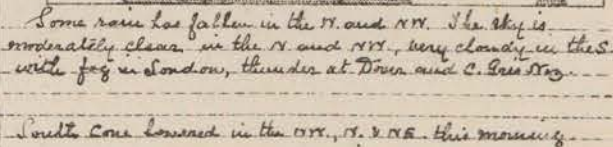 Some rain has fallen in the N. and NW. The sky is
moderately clear in the N. and NW., very cloudy in the S.
with fog in London, thunder at Dover and C. Gris Nez.
South Cone lowered in the NW., N. & NE. this morning.